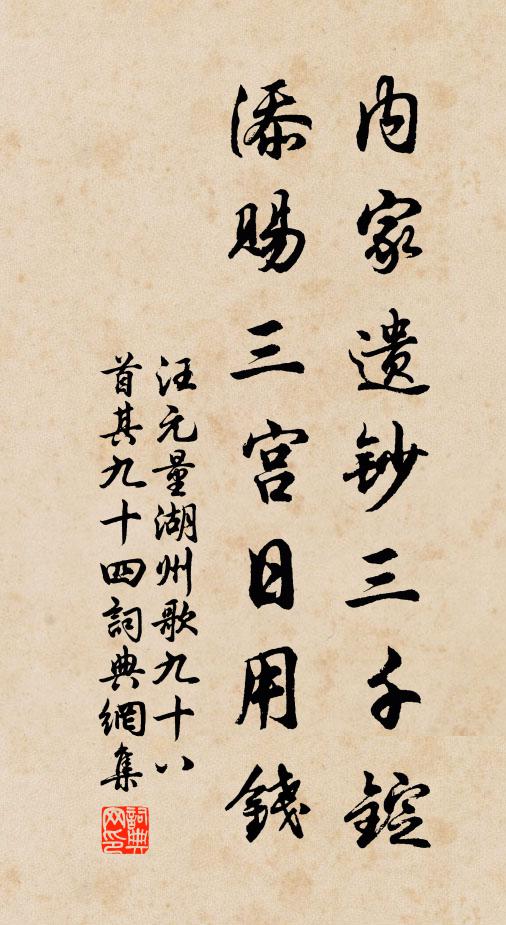 内家遗钞三千锭
添賜三宫日用錢
汪元量湖州歌九十八
首其九十四詞典網集
詞典网印